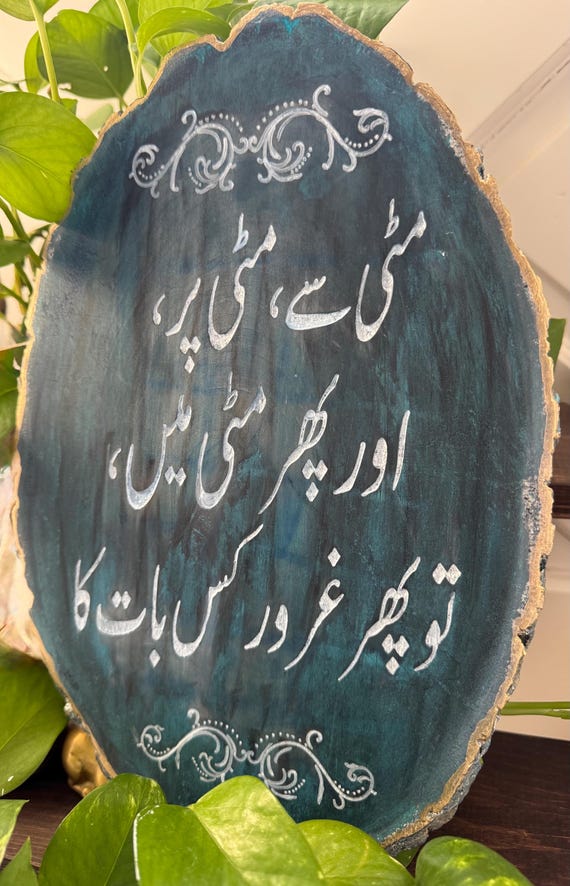 مٹی سے، مٹی پر،
اور پھر مٹی میں،
تو پھر غرور کس بات کا